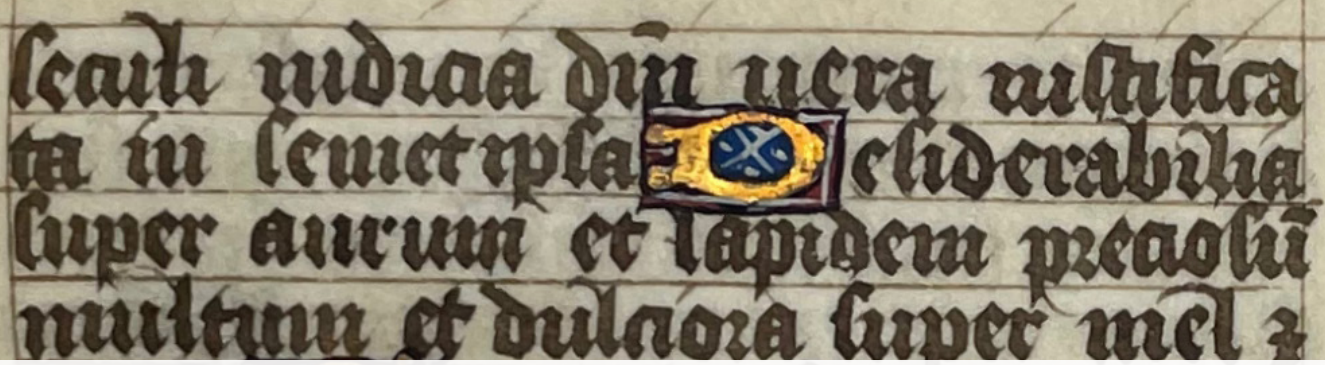 seculi iudicia dn̄i uera iustifica
ta in semetipsa Desiderabilia
super aurum et lapidem preciosū
multum et dulciora super mel ⁊